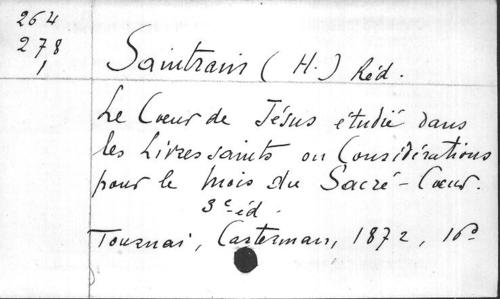 264
278
1
Saintrain (H.) Réd.
Le Cœur de Jésus étudié dans
les Livres saints ou Considérations
pour le mois du Sacré-Cœur.
3e éd.
Tournai, Casterman, 1872, 16°